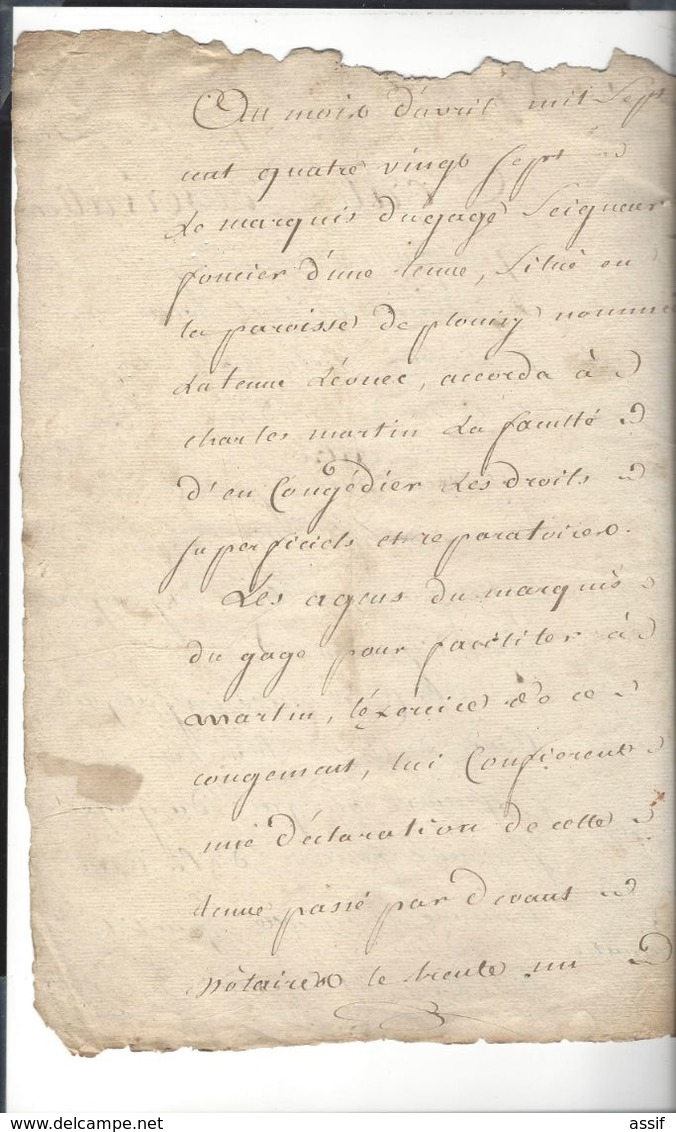 Au mois d'avril mil Sept
cent quatre vingt sept
Le marquis dugage Seigneur
foncier d'une tenue, Situé en
la paroisse de plouizy nommée
La tenue Léonec, accorda à
charles martin La faculté
d'en Congédier Les droits
superficiels et reparatoires.
Les agens du marquis
du gage pour faciliter à
Martin, l'éxercice de ce
congement, lui Confierent
une déclaration de cette
tenue passé par devant
Nôtaires le trente un
www.delcampe.net
assif